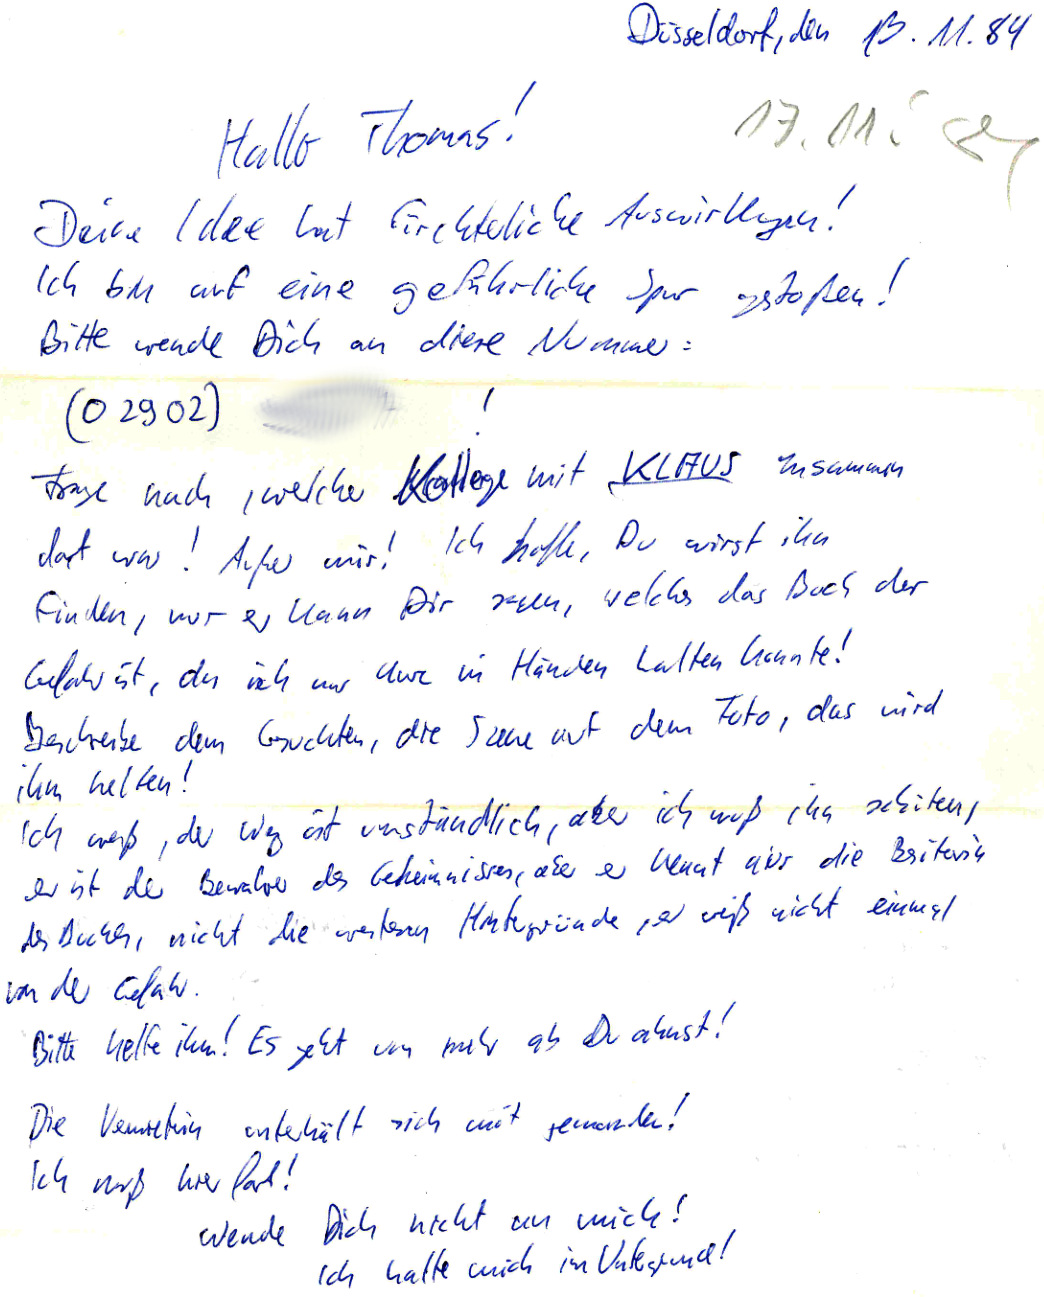 Düsseldorf, den 13.11.84
17.11.
Hallo Thomas!
Deine Idee hat fürchterliche Auswirkungen!
Ich bin auf eine gefährliche Spur gestoßen!
Bitte wende Dich an diese Nummer:
(0 29 02) !
Frage nach, welcher Kollege mit KLAUS zusammen
dort war! Außer mir! Ich hoffe, Du wirst ihn
finden, nur er kann Dir sagen, welches das Buch der
Gefahr ist, das ich nur kurz in Händen halten konnte!
Beschreibe dem Gesuchten, die Szene auf dem Foto, das wird
ihm helfen!
Ich weiß, der Weg ist umständlich, aber ich muß ihn schützen,
er ist der Bewahrer des Geheimnisses, aber er kennt nur die Besitzerin
des Buches, nicht die weiteren Hintergründe, er weiß nicht einmal
von der Gefahr.
Bitte helfe ihm! Es geht um mehr als Du ahnst!
Die Vermieterin unterhält sich mit jemanden!
Ich muß hier fort!
Wende Dich nicht an mich!
Ich halte mich im Untergrund!